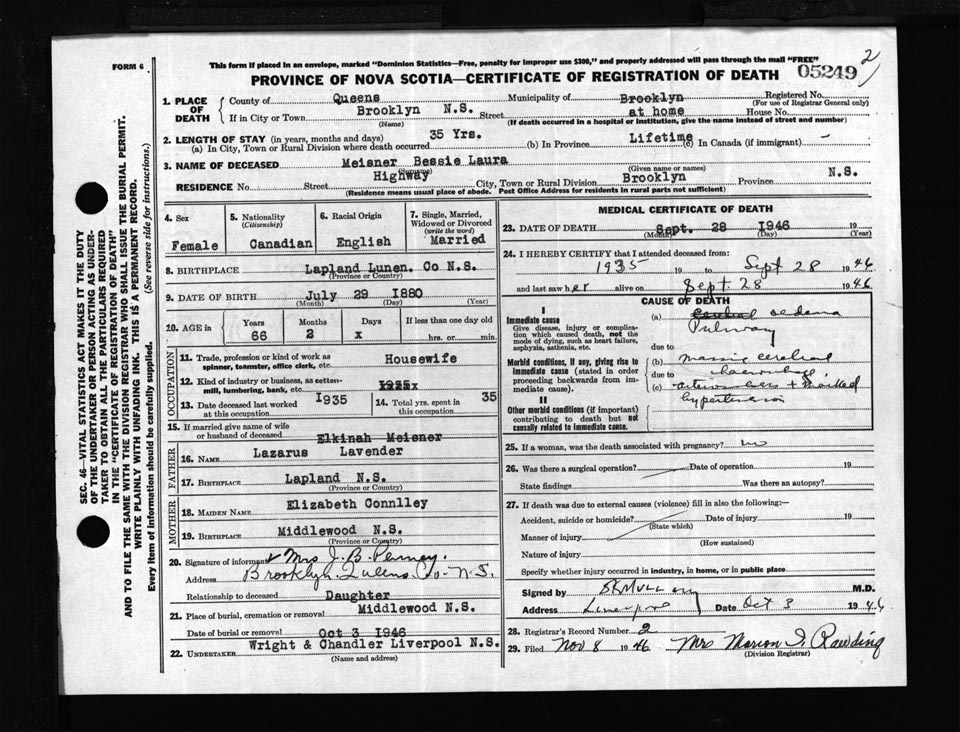 FORM 6
This form if placed in an envelope, marked "Dominion Statistics—Free, penalty for improper use $300," and properly addressed will pass through the mail "FREE"
2
05249
PROVINCE OF NOVA SCOTIA—CERTIFICATE OF REGISTRATION OF DEATH
SEC. 46- VITAL STATISTICS ACT MAKES IT THE DUTY
OF THE UNDERTAKER OR PERSON ACTING AS UNDER-
TAKER TO OBTAIN ALL THE PARTICULARS REQUIRED
IN THE "CERTIFICATE OF REGISTRATION OF DEATH"
AND TO FILE THE SAME WITH THE DIVISION REGISTRAR WHO SHALL ISSUE THE BURIAL PERMIT.
WRITE PLAINLY WITH UNFADING INK. THIS IS A PERMANENT RECORD.
Every item of information should be carefully supplied. (See reverse side for instructions.)
1. PLACE OF DEATH
County of Queens Municipality of Brooklyn Registered No.
(For use of Registrar General only)
If in City or Town Brooklyn N.S. Street at home House No.
(Name) (If death occurred in a hospital or institution, give the name instead of street and number)
2. LENGTH OF STAY (in years, months and days)
(a) In City, Town or Rural Division where death occurred 35 Yrs. (b) In Province Lifetime (c) In Canada (if immigrant) –
3. NAME OF DECEASED Meisner Bessie Laura
(Surname) (Given name or names)
RESIDENCE No. Street Highway City, Town or Rural Division Brooklyn Province N.S.
(Residence means usual place of abode. Post Office Address for residents in rural parts not sufficient)
4. Sex
Female
5. Nationality
(Citizenship)
Canadian
6. Racial Origin
English
7. Single, Married,
Widowed or Divorced
(write the word)
Married
8. BIRTHPLACE Lapland Lunen. Co N.S.
(Province or Country)
9. DATE OF BIRTH July 29 1880
(Month) (Day) (Year)
10. AGE in
Years Months Days If less than one day old
66 2 x hrs. or min.
OCCUPATION
11. Trade, profession or kind of work as
spinner, teamster, office clerk, etc. Housewife
12. Kind of industry or business, as cotton-
mill, lumbering, bank, etc.
13. Date deceased last worked
at this occupation 1935
14. Total yrs. spent in
this occupation 35
15. If married give name of wife
or husband of deceased Elkinah Meisner
FATHER
16. NAME Lazarus Lavender
17. BIRTHPLACE Lapland N.S.
(Province or Country)
MOTHER
18. MAIDEN NAME Elizabeth Connlley
19. BIRTHPLACE Middlewood N.S.
(Province or Country)
20. Signature of informant Mrs J. B. Penney.
Address Brooklyn. Queens. Co. N.S.
Relationship to deceased Daughter
21. Place of burial, cremation or removal Middlewood N.S.
Date of burial or removal Oct 3 1946
22. UNDERTAKER Wright & Chandler Liverpool N.S.
(Name and address)
MEDICAL CERTIFICATE OF DEATH
23. DATE OF DEATH Sept. 28 1946 19
(Month) (Day) (Year)
24. I HEREBY CERTIFY that I attended deceased from:
1935 19 to Sept 28 1946
and last saw her alive on Sept. 28 1946.
CAUSE OF DEATH
I
Immediate cause
Give disease, injury or complica-
tion which caused death, not the
mode of dying, such as heart failure,
asphyxia, asthenia, etc.
Morbid conditions, if any, giving rise to
immediate cause (stated in order
proceeding backwards from im-
mediate cause).
II
Other morbid conditions (if important)
contributing to death but not
causally related to immediate cause.
(a) oedema
due to
(b) massive cerebral
due to haemorrhage
(c) + marked
hypertension
25. If a woman, was the death associated with pregnancy? no
26. Was there a surgical operation? Date of operation 19
State findings Was there an autopsy?
27. If death was due to external causes (violence) fill in also the following:—
Accident, suicide or homicide? Date of injury 19
(State which)
Manner of injury
(How sustained)
Nature of injury
Specify whether injury occurred in industry, in home, or in public place
Signed by M.D.
Address Liverpool Date Oct 3 1946
28. Registrar's Record Number 2
29. Filed Nov 8 1946 Mrs Marion I. Rawding
(Division Registrar)